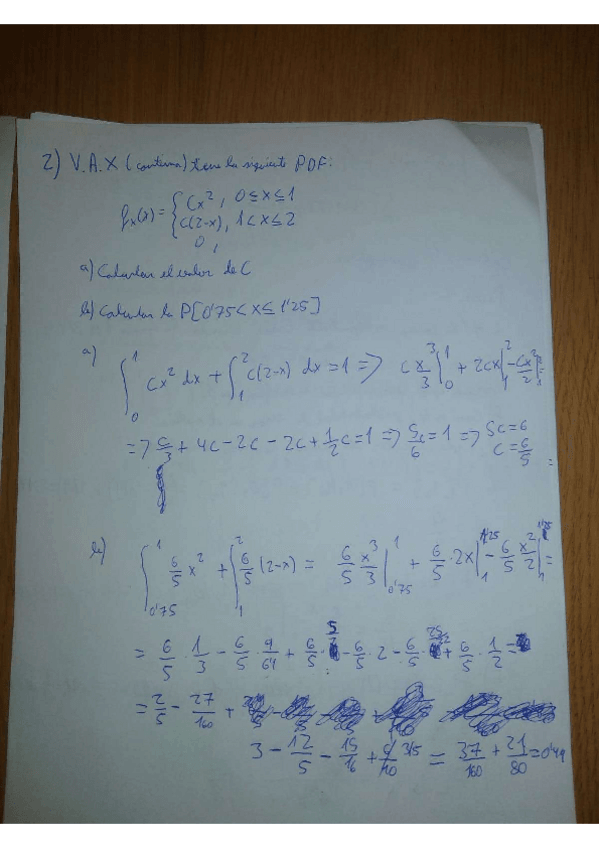 2) V.A. X (continua) tiene la siguiente PDF:
fx(x) = { Cx², 0≤x≤1
c(2-x), 1<x≤2
0,
a) Calcular el valor de C
b) Calcular la P[0'75<x≤1'25]
a) ∫₀¹ Cx² dx + ∫₁² c(2-x) dx = 1 => Cx³/3 |₀¹ + 2cx |₁² - Cx²/2 |₁²
=> C/3 + 4c - 2c - 2c + 1/2 c = 1 => 5c/6 = 1 => 5c = 6
C = 6/5
b) ∫₀'₇₅¹ 6/5 x² + ∫₁² 6/5 (2-x) = 6/5 x³/3 |₀'₇₅¹ + 6/5 · 2x |₁^1'25 - 6/5 x²/2 |₁^1'25 =
= 6/5 · 1/3 - 6/5 · 9/64 + 6/5 · 5/2 - 6/5 · 2 - 6/5 · 25/32 + 6/5 · 1/2 =
= 2/5 - 27/160 +
3 - 12/5 - 15/16 + 3/5 = 37/160 + 21/80 = 0'49